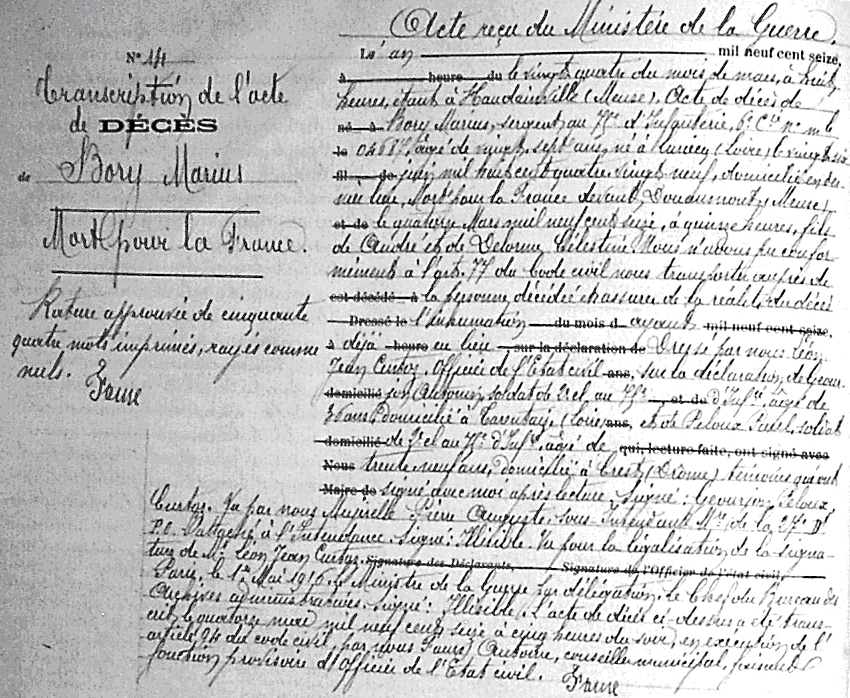 Acte reçu du Ministère de la Guerre.
L'an mil neuf cent seize,
à heure du le vingt quatre du mois de mars, à huit
heures, étant à Haudainville (Meuse), Acte de décès de
né à Bory Marius, sergent au 77e d'Infanterie, 6e Cie no mle
le 04617, âgé de vingt sept ans, né à (Loire) le vingt six
fil de juin mil huit cent quatre vingt neuf, domicilié en der
nier lieu, Mort pour la France devant Douaumont (Meuse)
et de le quatorze Mars mil neuf cent seize, à quinze heures, fils
de André et de Delorme Célestine. Nous n'avons pu confor
mément à l'art. 77 du Code civil nous transporter auprès de
est décédé à la personne décédée et assurer de la réalité du décès
Dressé le l'inhumation du mois d ayant mil neuf cent seize,
à déjà heure eu lieu, sur la déclaration de Dressé par nous Léon
Jean Curtoz, Officier de l'Etat civil ans, sur la déclaration de
domicilié Antonin, soldat de 2e cl au , et de d'Infie âgé de
ans, domicilié à Tarentaise, (Loire) ans, et de Peloux Paul, soldat
domicilié de 2e cl au d'Infie, âgé de qui, lecture faite, ont signé avec
Nous trente neuf ans, domicilié à Crest (Drôme) témoins qui ont
Maire de signé avec moi après lecture. Signé: Peloux,
Curtoz. Vu par nous Pierre Auguste sous-Intendant Mre de la 27e Don
P.O. l'attaché à l'Intendance. Signé: Illisible. Vu pour la légalisation de la signa-
ture de Mr Léon Jean Curtoz. Signature des Déclarants, Signature de l'Officier de l'état civil,
Paris, le 1er Mai 1916. Le Ministre de la Guerre par délégation. Le Chef du Bureau des
Archives administratives. Signé: Illisible. L'acte de décès ci-dessus a été trans-
crit le quatorze mai mil neuf cent seize à cinq heures du soir, en exécution de l'
article 94 du code civil, par nous Faure Antoine, conseiller municipal, faisant
fonction provisoire d'Officier de l'Etat civil. Faure
No 14
Transcription de l'acte
de DÉCÈS
de Bory Marius
Mort pour la France.
Rature approuvée de cinquante
quatre mots imprimés, rayés comme
nuls. Faure